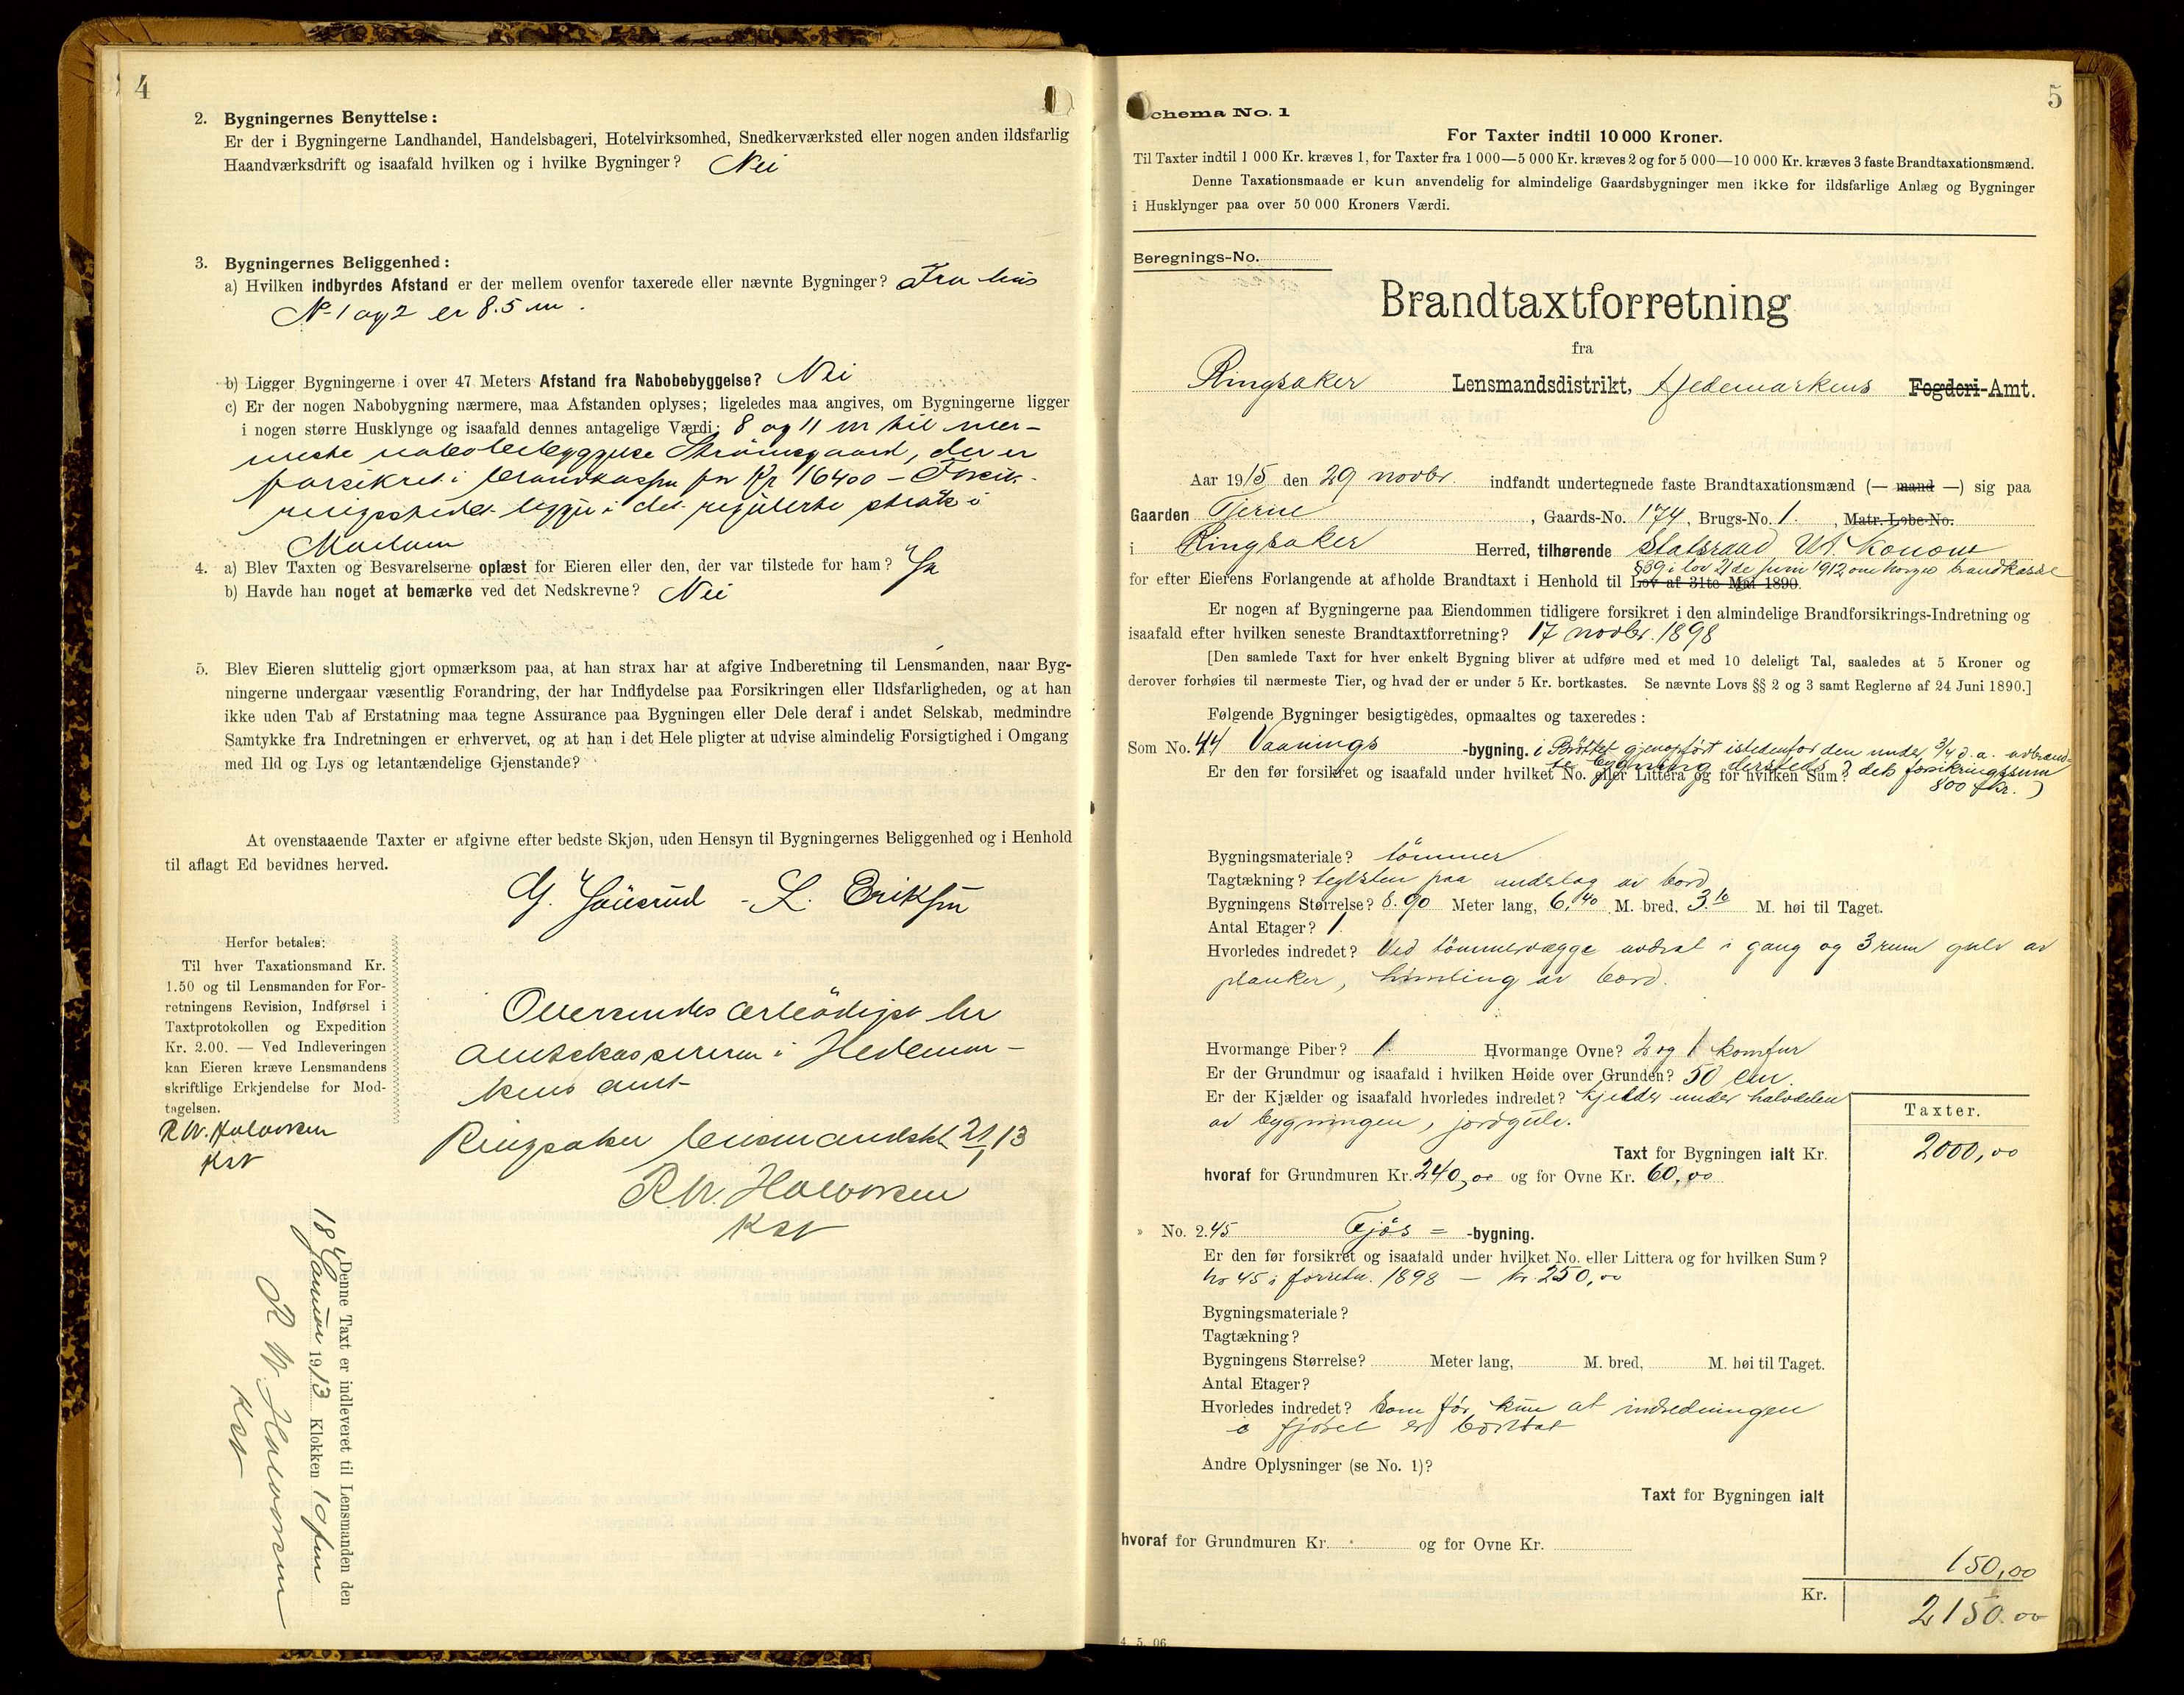 4
2. Bygningernes Benyttelse:
Er der i Bygningerne Landhandel, Handelsbageri, Hotelvirksomhed, Snedkerværksted eller nogen anden ildsfarlig
Haandværksdrift og isaafald hvilken og i hvilke Bygninger? Nei
3. Bygningernes Beliggenhed:
a) Hvilken indbyrdes Afstand er der mellem ovenfor taxerede eller nævnte Bygninger? Fra hus
No 1 og 2 er 8.5 m.
b) Ligger Bygningerne i over 47 Meters Afstand fra Nabobebyggelse? Nei
c) Er der nogen Nabobygning nærmere, maa Afstanden oplyses; ligeledes maa angives, om Bygningerne ligger
i nogen større Husklynge og isaafald dennes antagelige Værdi: 8 og 11 m til nær-
meste nabobebyggelse Strømsgaard, der er
forsikret i brandkassen for Kr 16400 – Forsik-
ringsstedet ligger i det regulerte strøk i
Moelven
4. a) Blev Taxten og Besvarelserne oplæst for Eieren eller den, der var tilstede for ham? Ja
b) Havde han noget at bemærke ved det Nedskrevne? Nei
5. Blev Eieren sluttelig gjort opmærksom paa, at han strax har at afgive Indberetning til Lensmanden, naar Byg-
ningerne undergaar væsentlig Forandring, der har Indflydelse paa Forsikringen eller Ildsfarligheden, og at han
ikke uden Tab af Erstatning maa tegne Assurance paa Bygningen eller Dele deraf i andet Selskab, medmindre
Samtykke fra Indretningen er erhvervet, og at han i det Hele pligter at udvise almindelig Forsigtighed i Omgang
med Ild og Lys og letantændelige Gjenstande?
At ovenstaaende Taxter er afgivne efter bedste Skjøn, uden Hensyn til Bygningernes Beliggenhed og i Henhold
til aflagt Ed bevidnes herved.
G. - L. Eriksen
Herfor betales:
Til hver Taxationsmand Kr.
1.50 og til Lensmanden for For-
retningens Revision, Indførsel i
Taxtprotokollen og Expedition
Kr. 2.00. — Ved Indleveringen
kan Eieren kræve Lensmandens
skriftlige Erkjendelse for Mod-
tagelsen.
R W. Halvorsen
Kst
Oversendes ærbødigst hr
amtskassereren i Hedemar-
kens amt
Ringsaker lensmandskt 21/1 13
R. W. Halvorsen
Kst
Denne Taxt er indleveret til Lensmanden den
18 Januar 1913 Klokken 10 fm
R W. Halvorsen
Kst
5
Schema No. 1
For Taxter indtil 10 000 Kroner.
Til Taxter indtil 1 000 Kr. kræves 1, for Taxter fra 1 000—5 000 Kr. kræves 2 og for 5 000—10 000 Kr. kræves 3 faste Brandtaxationsmænd.
Denne Taxationsmaade er kun anvendelig for almindelige Gaardsbygninger men ikke for ildsfarlige Anlæg og Bygninger
i Husklynger paa over 50 000 Kroners Værdi.
Beregnings-No.
Brandtaxtforretning
fra
Ringsaker Lensmandsdistrikt, Hedemarkens Fogderi-Amt.
Aar 1915 den 29 novbr. indfandt undertegnede faste Brandtaxationsmænd (— mand —) sig paa
Gaarden Tjerne, Gaards-No. 174, Brugs-No. 1., Matr. Løbe-No.
i Ringsaker Herred, tilhørende Statsraad W. Konow
§ 39 i lov 21de juni 1912 om Norges brandkasse
for efter Eierens Forlangende at afholde Brandtaxt i Henhold til Lov af 31te Mai 1890.
Er nogen af Bygningerne paa Eiendommen tidligere forsikret i den almindelige Brandforsikrings-Indretning og
isaafald efter hvilken seneste Brandtaxtforretning? 17 novbr. 1898
[Den samlede Taxt for hver enkelt Bygning bliver at udføre med et med 10 deleligt Tal, saaledes at 5 Kroner og
derover forhøies til nærmeste Tier, og hvad der er under 5 Kr. bortkastes. Se nævnte Lovs §§ 2 og 3 samt Reglerne af 24 Juni 1890.]
Følgende Bygninger besigtigedes, opmaaltes og taxeredes:
Som No. 44 Vaanings -bygning. i Brøttet gjenopført istedenfor den under 3/4 d. a. avbrænd-
te bygning dersteds
Er den før forsikret og isaafald under hvilket No. eller Littera og for hvilken Sum? dets forsikringssum
800 kr.)
Bygningsmateriale? tømmer
Tagtækning? teglsten paa underlag av bord
Bygningens Størrelse? 8.90 Meter lang, 6,40 M. bred, 3.10 M. høi til Taget.
Antal Etager? 1
Hvorledes indredet? Ved tømmervægge avdelt i gang og 3 rum gulv av
planker, himling av bord.
Hvormange Piber? 1. Hvormange Ovne? 2 og 1 komfur
Er der Grundmur og isaafald i hvilken Høide over Grunden? 50 cm.
Er der Kjælder og isaafald hvorledes indredet? Kjelder under halvdelen
av bygningen, jordgulv.
Taxter.
Taxt for Bygningen ialt Kr. 2000,00
hvoraf for Grundmuren Kr. 240,00 og for Ovne Kr. 60,00
» No. 2. 45 Fjøs = -bygning.
Er den før forsikret og isaafald under hvilket No. eller Littera og for hvilken Sum?
No 45 i forretn. 1898 — kr. 250,00
Bygningsmateriale?
Tagtækning?
Bygningens Størrelse? Meter lang, M. bred, M. høi til Taget.
Antal Etager?
Hvorledes indredet? Som før, kun at indredningen
i fjøset er borttat
Andre Oplysninger (se No. 1)?
Taxt for Bygningen ialt
hvoraf for Grundmuren Kr. og for Ovne Kr.
150,00
Kr. 2150.00
4. 5. 06